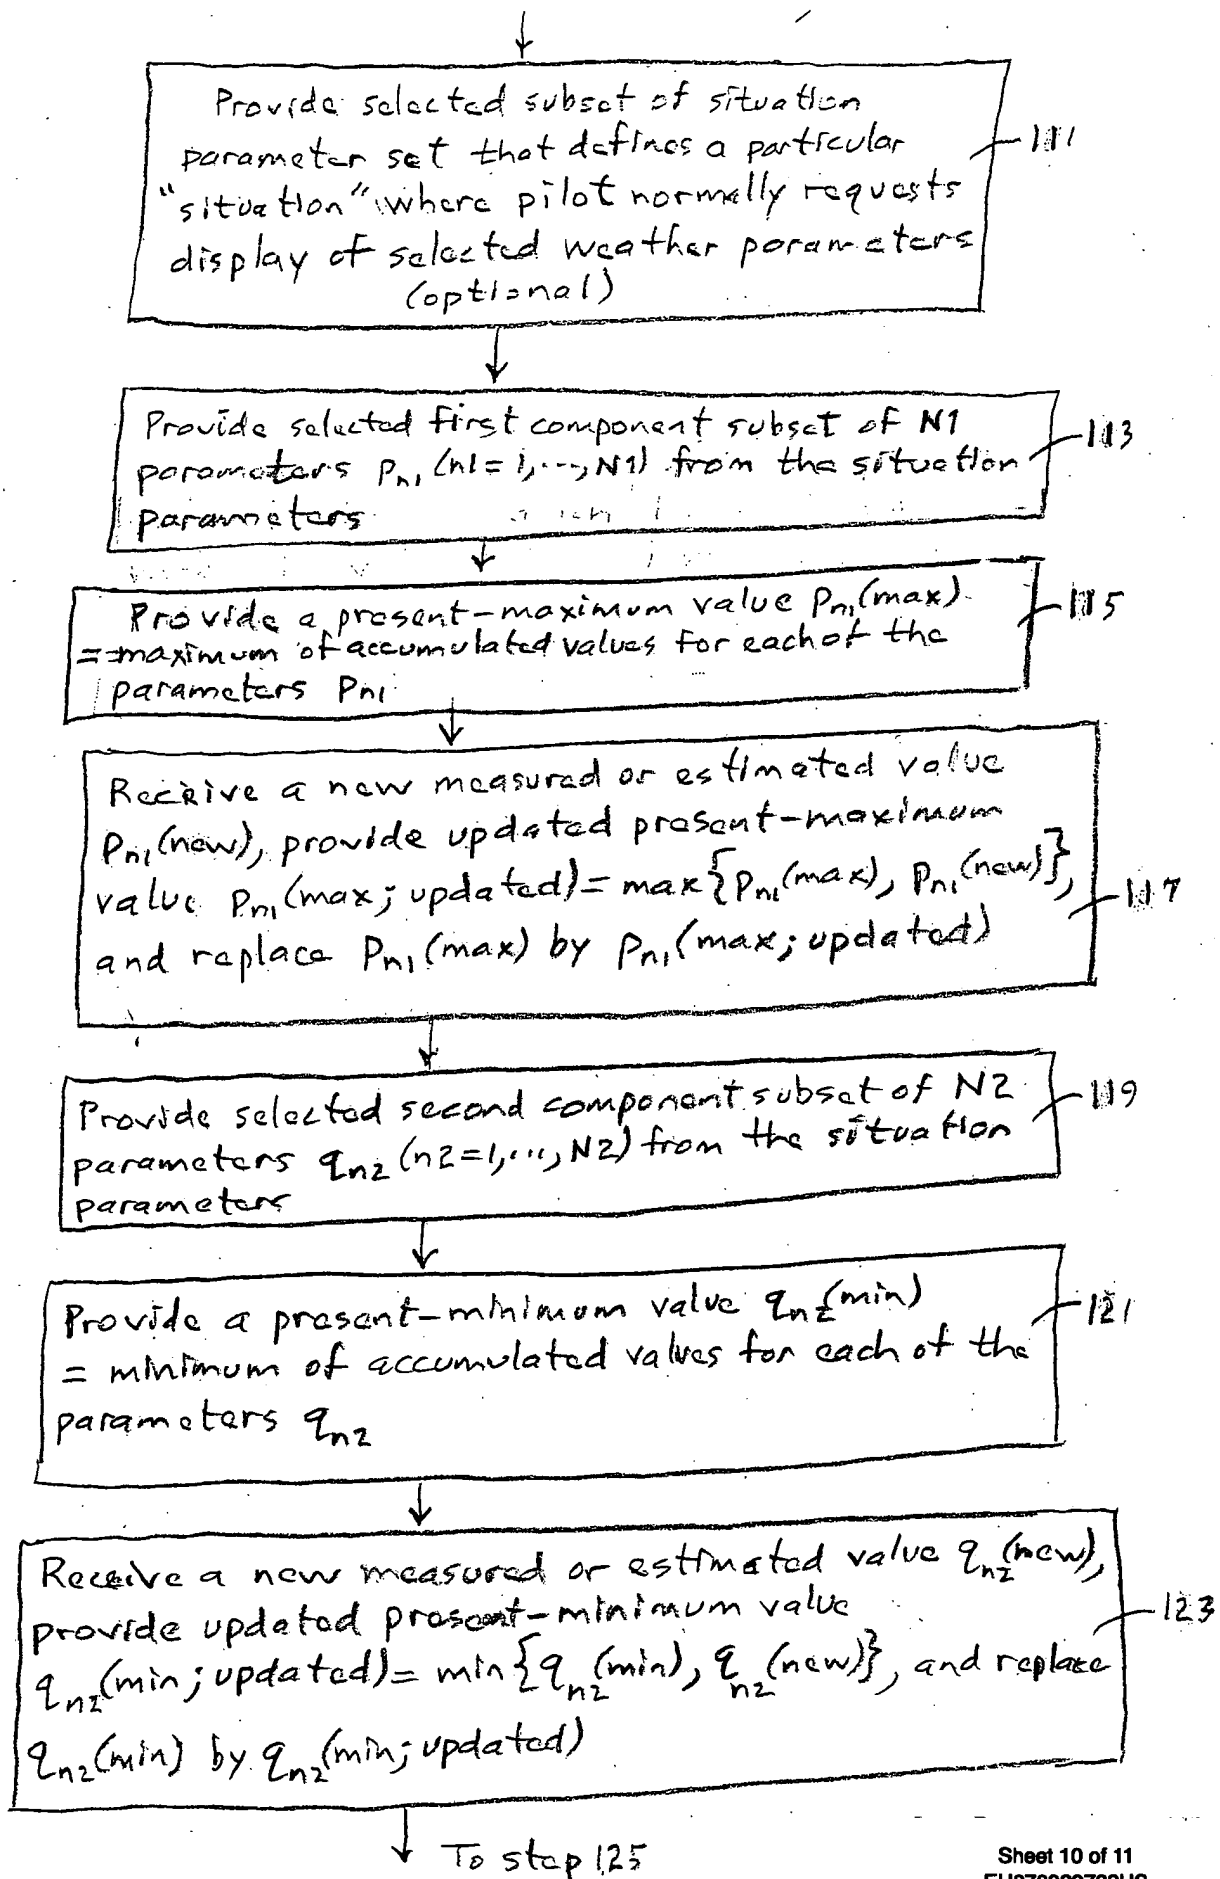 Provide selected subset of situation
parameter set that defines a particular
"situation" where pilot normally requests
display of selected weather parameters
(optional)
111
Provide selected first component subset of N1
parameters pn1 (n1=1,...,N1) from the situation
parameters
113
Provide a present-maximum value pn1(max)
= maximum of accumulated values for each of the
parameters pn1
115
Receive a new measured or estimated value
pn1(new), provide updated present-maximum
value pn1(max; updated) = max{pn1(max), pn1(new)},
and replace pn1(max) by pn1(max; updated)
117
Provide selected second component subset of N2
parameters qn2 (n2=1,...,N2) from the situation
parameters
119
Provide a present-minimum value qn2(min)
= minimum of accumulated values for each of the
parameters qn2
121
Receive a new measured or estimated value qn2(new),
provide updated present-minimum value
qn2(min; updated) = min{qn2(min), qn2(new)}, and replace
qn2(min) by qn2(min; updated)
123
To step 125
Sheet 10 of 11